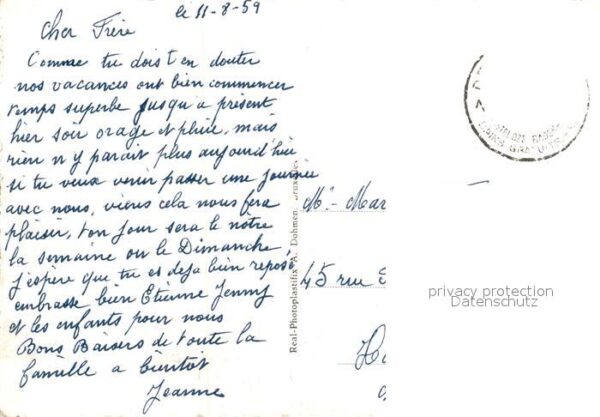 le 11-8-59
Cher Frère
Comme tu dois t en douter
nos vacances ont bien commencer
temps superbe jusqu a présent
hier soir orage et pluie, mais
rien n y parait plus aujourd'hui
si tu veux venir passer une journée
avec nous, viens cela nous fera
plaisir, ton jour sera le nôtre
la semaine ou le Dimanche
j'espère que tu es deja bien reposé,
embrasse bien Etienne Jenny
et les enfants pour nous
Bons Baisers de toute la
famille a bientôt
Jeanne
Real-Photoplastifix A. Dohmen
Mr. Mar
45 rue
privacy protection
Datenschutz